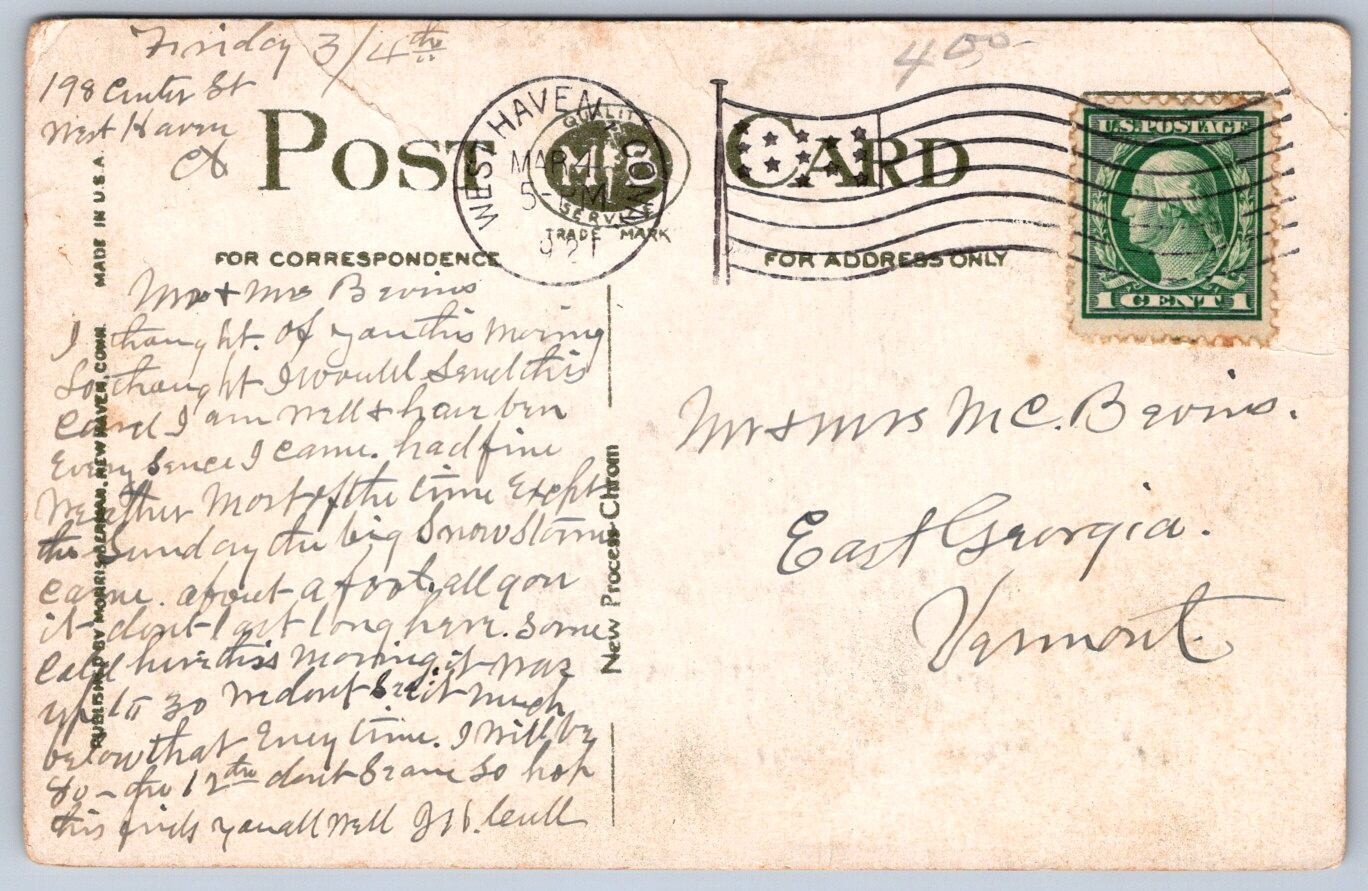 Friday 3/4th
198 Center St
West Haven
Ct
4 00
POST CARD
QUALITY
M
SERVICE
TRADE MARK
WEST HAVEN CONN.
MAR 4
5- PM
1921
U.S. POSTAGE
1 CENT 1
FOR CORRESPONDENCE
FOR ADDRESS ONLY
Mr + Mrs Bevins
I thought of you this Morning
So thought I would Send this
Card I am well & have ben
Every Sence I Came. had fine
Weather Most of the time Except
the Sunday the big Snow Storm
Came. about a foot, all gon
it dont last long here. Some
Cold here this Morning it was
up to 30 we dont See it Much
below that Eney time. I will be
80 - the 12th dont So hop
this finds you all well J W.
Mr & Mrs M C. Bevins.
East Georgia.
Vermont.
PUBLISHED BY MORRIS BERMAN, NEW HAVEN, CONN. MADE IN U.S.A.
New Process Chrom